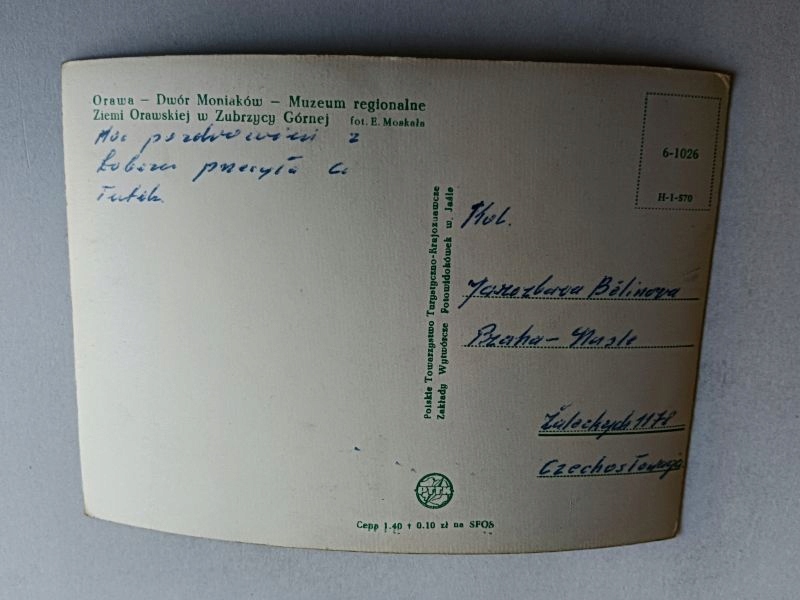 Orawa – Dwór Moniaków – Muzeum regionalne
Ziemi Orawskiej w Zubrzycy Górnej fot. E. Moskała
Moc pozdrowień z
przesyła Ci
6-1026
H-1-570
Polskie Towarzystwo Turystyczno-Krajoznawcze
Zakłady Wytwórcze Fotowidokówek w Jaśle
Kol.
Jarozbava Bělinova
Praha – Nusle
1178
Czechosłowacja
PTTK
Cena 1.40 + 0.10 zł na SFOS